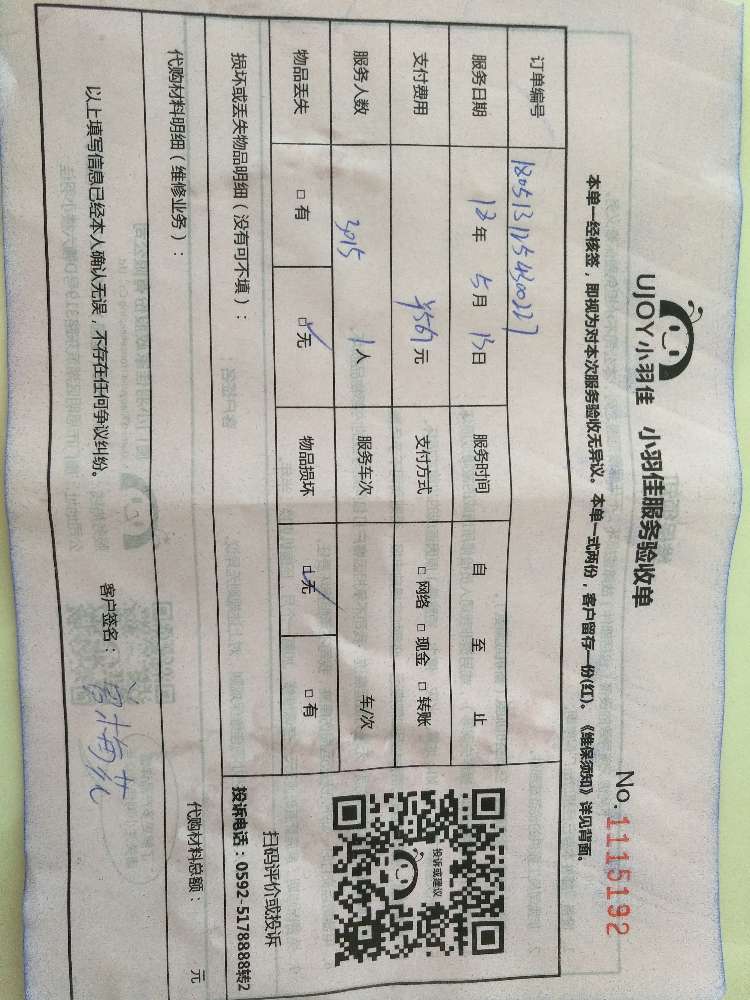 UJOY小羽佳 小羽佳服务验收单
No.1115192
本单一经核签，即视为对本次服务验收无异议。本单一式两份，客户留存一份(红)。《维保须知》详见背面。
订单编号
服务日期 18年 5月 13日 服务时间 自 至 止
支付费用 元 支付方式 □网络 □现金 □转账
服务人数 1人 服务车次 车/次
物品丢失 □有 ☑无 物品损坏 ☑无 □有
投诉或建议
扫码评价或投诉
投诉电话：0592-5178888转2
损坏或丢失物品明细（没有可不填）：
代购材料明细（维修业务）： 代购材料总额： 元
以上填写信息已经本人确认无误，不存在任何争议纠纷。 客户签名：